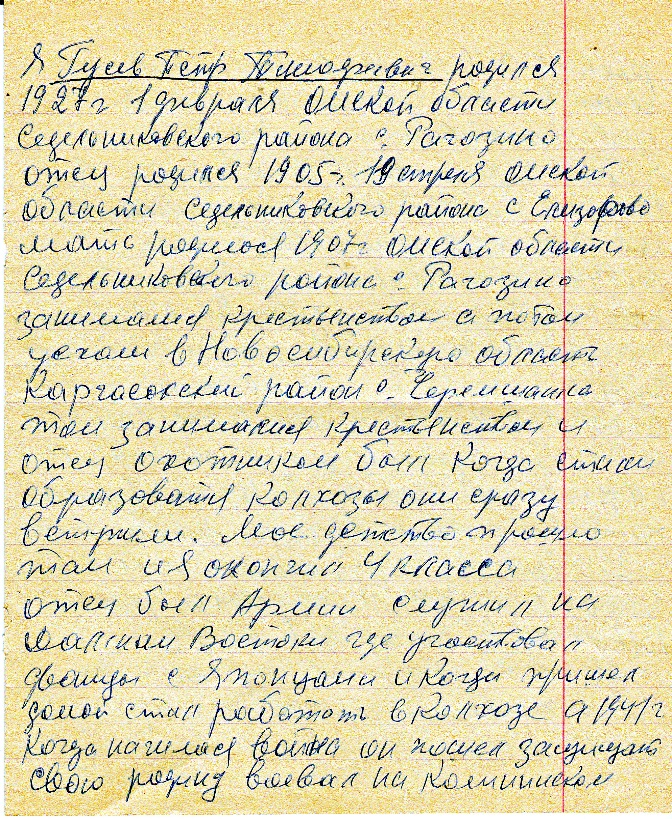 Я Гусев Пётр Тимофеевич родился
1927 г 1 февраля Омской области
Седельниковского района с. Рагозино
отец родился 1905 г. 19 апреля Омской
области Седельниковского района с Елизорово
мать родилося 1907 г Омской области
Седельниковского района с. Рагозино
занимался крестьенством а потом
уехали в Новосибирскую область
Каргасокский район с. Черемшанка
там занимался крестьенством и
отец охотником был Когда стали
образоватя Колхозы они сразу
вступили. Мое детство прошло
там и я окончил 4 класса
отец был Армии служил на
Далнем Востоки где участвовал
дважды с Японцами и Когда пришел
домой стал работать в Колхозе а 1941 г
Когда началася война он пошел защищать
свою родину воевал на Калининском